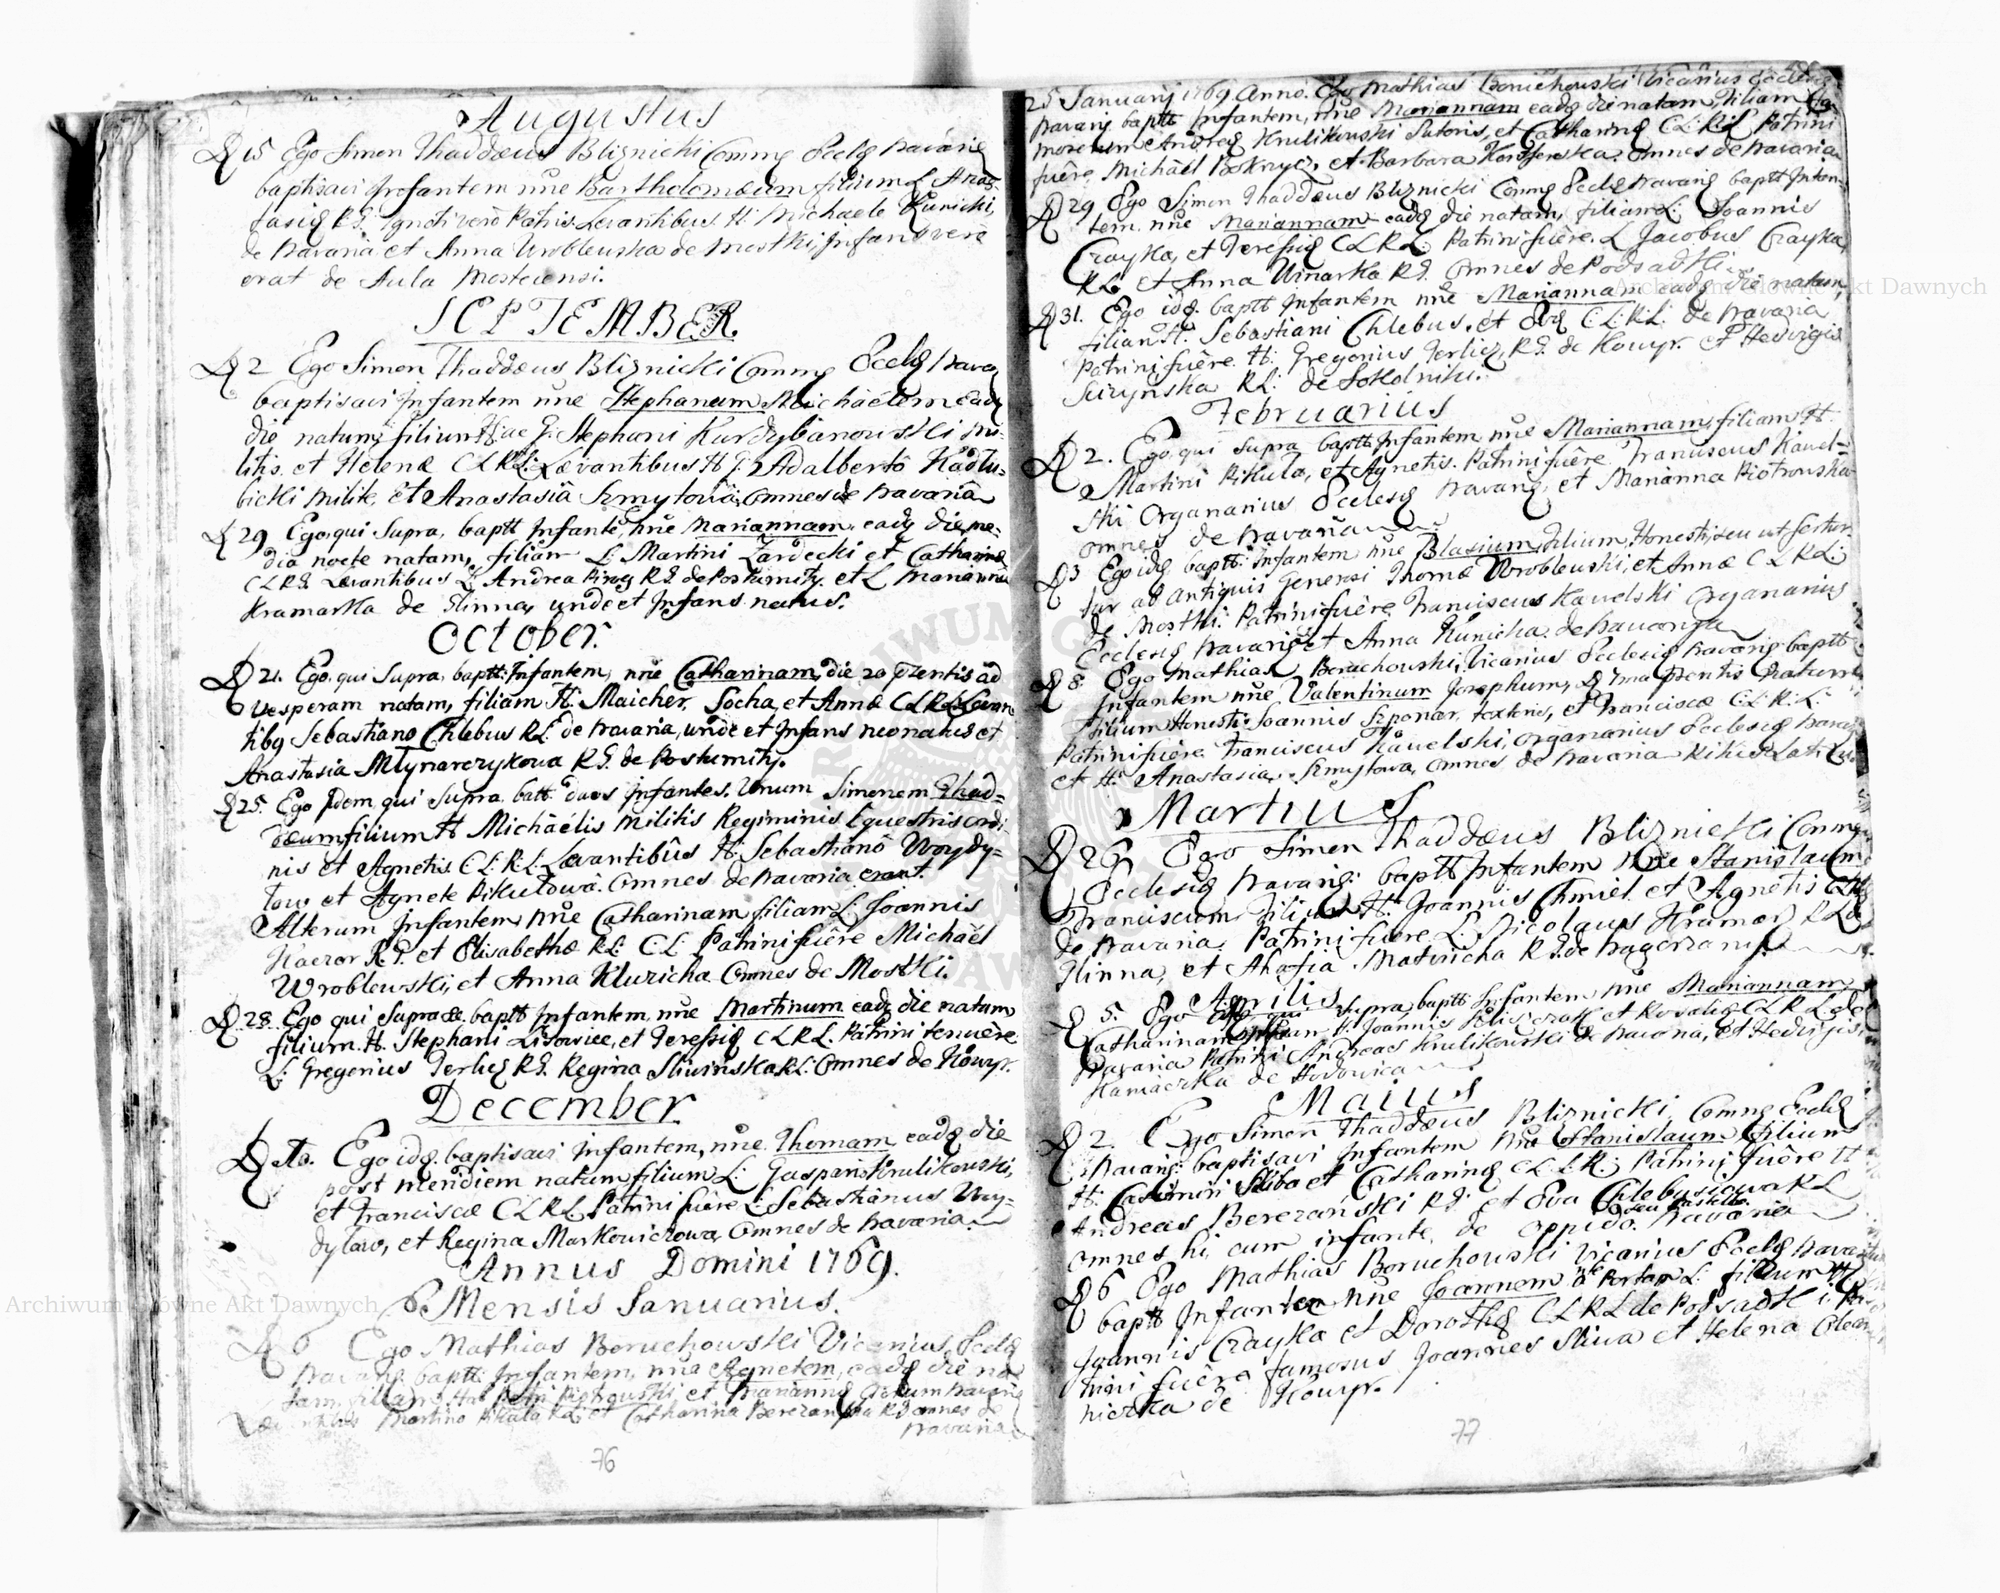 Augustus
D 15 Ego Simon Thaddæus Bliznicki Comme Eccle Navariæ
baptisavi Infantem nne Bartholomæum filium L. Anas-
tasiæ R.G. Ignoti vero Patris. Levantibus H. Michaele Kunicki,
de Navaria et Anna Wroblewska de Mostki, Infans vero
erat de Aula Mosteiensi.
SEPTEMBER
D 2 Ego Simon Thaddæus Bliznicki Comme Eccle Navar
baptisavi Infantem nne Stephanum Michaelem eadē
die natum, filium H. ac G. Stephani Kurdybanowski Mi-
litis et Helenæ C.L.R.L. Levantibus H. G. Adalberto Nadłu-
bicki Milite, et Anastasia Szmytowa, omnes de Navaria
D 29 Ego, qui Supra, baptt Infantē, nne Mariannam, eadē die me-
dia nocte natam, filiam L. Martini Zardecki et Catharinæ
C.L.R.G. Levantibus L. Andrea Pirog R.G. de Postumity, et L. Marianna
Kramarka de Glinna, unde et Infans natus.
October.
D 21. Ego, qui Supra, baptt. Infantem, nne Catharinam, die 20 præntis ad
Vesperam natam, filiam H. Maicher Socha, et Annæ C.L.R.L. Levan-
tibq Sebastiano Chlebus R.L. de Navaria, unde et Infans neonatus et
Anastasia Młynarczykowa R.G. de Postumity.
D 25. Ego Idem, qui Supra batt. duos Infantes. Unum Simonem Thad-
dæum filium H. Michaelis Militis Regiminis Equestris ordi-
nis et Agnetis C.L.R.L. Levantibus H. Sebastiano Woydy-
tow et Agnete Pikułowa. Omnes de Navaria erant.
Alterum Infantem nne Catharinam filiam L. Joannis
Kaczor R.G. et Elisabethæ R.L. C.L. Patrini fuêre Michaël
Wroblewski, et Anna Kluzicha Omnes de Mostki.
D 28. Ego qui Supra baptt Infantem, nne Martinum eadē die natum
filium. H. Stephani Lisowiec, et Teressiæ C.L.R.L. Patrini tenuêre
L: Gregorius Terlicz R.G. Regina Sliwinska R.L: Omnes de Nowyr.
December.
D Ego idē baptisavi Infantem, nne Thomam eadē die
post meridiem natum filium L: Gaspari Krulikowski,
et Franciscæ C.L.R.L. Patrini fuêre L: Sebastianus Woy-
dyław, et Regina Markowiczowa, Omnes de Navaria.
Annus Domini 1769.
Mensis Januarius.
D 6 Ego Mathias Boruchowski Vicarius Eccle
Navariæ baptt. Infantem, nne Agnetem, eadē die na-
tam, filiam Petri Piotrowski et Mariannæ
Martino Pikula et Catharina Berezanska omnes de
Navaria
76
25 Januarij 1769 Anno. Ego Mathias Boruchowski Vicarius Ecclesiæ
Navariæ baptt Infantem, nne Mariannam eadē die natam, filiam
Andreæ Krulikowski Sutoris, et Catharinæ C.L.R.L Patrini
fuêre Michaël et Barbara omnes de Navaria
D 29 Ego Simon Thaddæus Bliznicki Comme Eccle Navariæ baptt Infan-
tem. nne Mariannam eadē die natam, filiam L: Joannis
Crayka, et Teressiæ C.L.R.L. Patrini fuêre. L. Jacobus Crayka,
R.L. et Anna Winarka R.G. Omnes de Podsadki.
D 31. Ego idē. baptt Infantem nne Mariannam eadē die natam,
filiam H. Sebastiani Chlebus, et Evæ C.L.R.L. de Navaria.
Patrini fuêre. H: Gregorius Terlicz, R.G. de Nowyr. et Hedvigis
R.L: de Sokolniki.
Februarius
D 2. Ego, qui supra baptt Infantem nne Mariannam, filiam H.
Martini Pikula, et Agnetis. Patrini fuêre. Franciscus Kawel-
ski Organarius Ecclesiæ Navariæ, et Marianna Piotrowska
omnes de Navaria
D 3 Ego idē baptt: Infantem nne Blasium, filium, Honesti, seu ut fertur
ab antiquis Generosi Thomæ Wroblewski, et Annæ C.L.R.L:
de Mostki. Patrini fuêre Franciscus Kawelski Organarius
Ecclesiæ Navariæ et Anna Kunicka de Navaria
D 8. Ego Mathias Boruchowski, Vicarius Ecclesiæ Navariæ baptt
Infantem nne Valentinum Josephum, D 7ma præntis natum
filium Honesti Joannis Szponar, textoris, et Franciscæ C.L.R.L.
Patrini fuêre Franciscus Kawelski, organarius Ecclesiæ Navar
et H: Anastasia Szmytowa, omnes de Navaria
Martius
D 26 Ego Simon Thaddæus Bliznicki Comme
Ecclesiæ Navariæ: baptt Infantem nne Stanislaum
Franciscum, filium H: Joannis Chmiel et Agnetis
de Navaria, Patrini fuêre L: Nicolaus Kramar R.L. de
Glinna, et Ahafia Matwicha R.G. de
Aprilis
D 5. Ego qui Supra, baptt Infantem nne Mariannam
Catharinam filiam H. Joannis et Rosaliæ C.L.R.L. de
Navaria Patrini Andreas Krulikowski de Navaria, et Hedvigis
Kamaczka de Hodowica
Maius
D 2. Ego Simon Thaddæus Bliznicki, Comme Eccle
Navariæ: baptisavi Infantem nne Stanislaum filium
H: Casimiri Skiba et Catharinæ C.L.L.R.: Patrini fuêre H
Andreas Berezański R.G: et Eva Chlebusiowa R.L
omnes hi, cum infante, de oppido. Navaria
D 6 Ego Mathias Boruchowski Vicarius Eccle Navar
baptt Infantem nne Joannem filium
Joannis Crayka et Dorothæ C.L.R.L. de Podsadki Pa-
trini fuêre famosus Joannes Sliwa et Helena
de Nowyr.
77
Archiwum Główne Akt Dawnych
Archiwum Główne Akt Dawnych